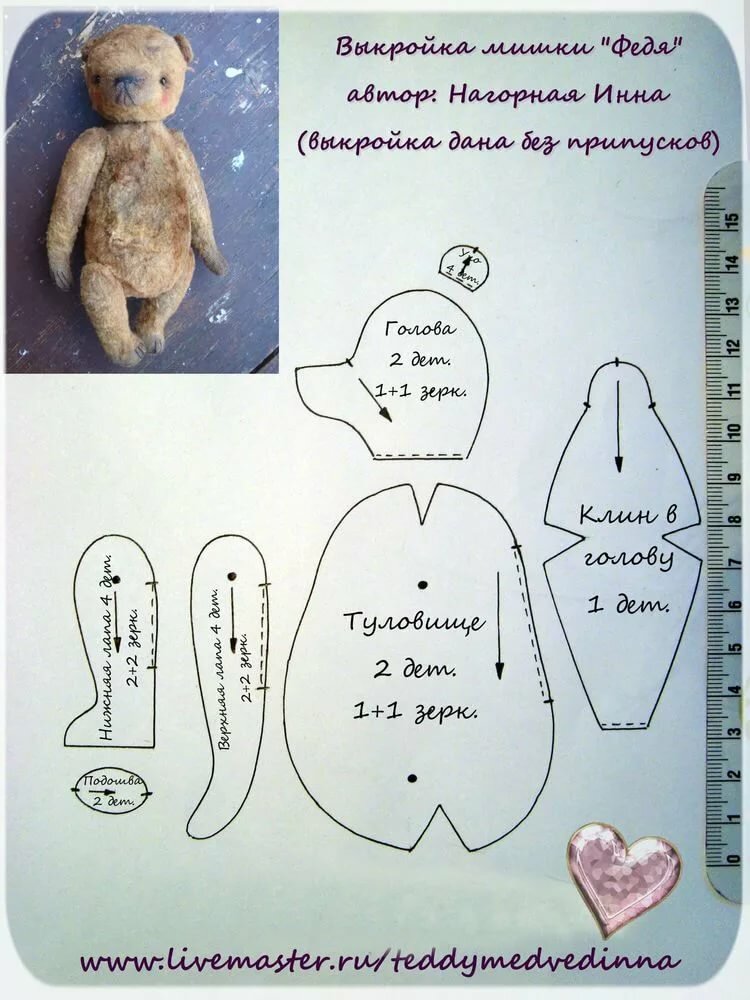 Выкройка мишки "Федя"
автор: Нагорная Инна
(выкройка дана без припусков)
Ухо
4 дет.
Голова
2 дет.
1+1 зерк.
Клин в
голову
1 дет.
Туловище
2 дет.
1+1 зерк.
Нижная лапа 4 дет.
2+2 зерк.
Верхная лапа 4 дет.
2+2 зерк.
Подошва
2 дет.
15
14
13
12
11
10
9
8
7
6
5
4
3
2
1
0
www.livemaster.ru/teddymedvedinna